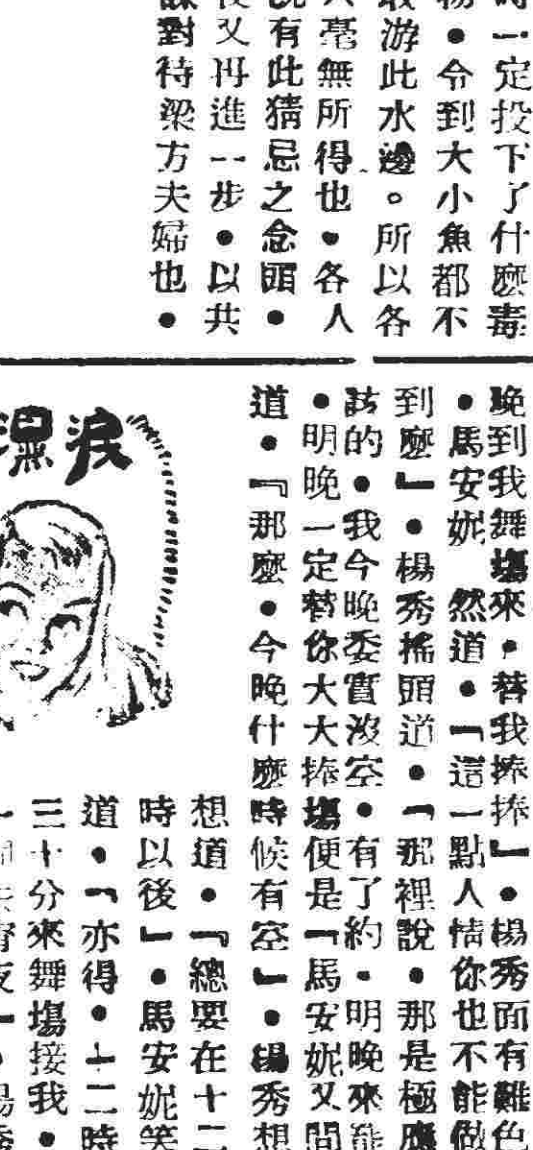 時一定投下了什麽毒
・令到大小魚都不
游此水邊。所以各
毫無所得也・各人
有此猜忌之念頭・
又再進一步・以共
對待梁方夫婦也・
晚到我舞塲來・替我捧捧」・楊秀面有難色
・馬安妮 然道・「這一點人情你也不能做
到麽」・楊秀搖頭道・「那裡說・那是極應
該的・我今晚委實沒空・有了約・明晚來能
・明晚一定替你大大捧塲便是「馬安妮又問
道・『那麽・今晚什麽時候有空」・楊秀想
想道・「總要在十二
時以後」・馬安妮笑
道・「亦得・十二時
三十分來舞塲接我・
淚濕